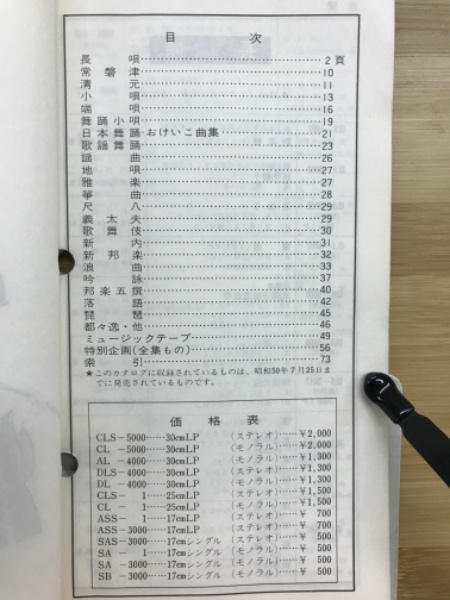 目 次
長 唄……2頁
常 磐 津……10
清 元……11
小 唄……13
端 唄……16
舞 踊 小 唄……19
日本舞踊おけいこ曲集……21
歌 謡 舞 踊……23
謡 曲……26
地 唄……27
雅 楽……27
箏 曲……28
尺 八……29
義 太 夫……29
歌 舞 伎……30
新 内……31
新 邦 楽……32
浪 曲……33
吟 詠……37
邦 楽 五 撰……40
落 語……42
琵 琶……45
都々逸・他……46
ミュージックテープ……49
特別企画(全集もの)……56
索 引……73
★このカタログに収録されているものは、昭和50年7月25日ま
でに発売されているものです。
価 格 表
CLS-5000……30cmLP (ステレオ)……¥2,000
CL-5000……30cmLP (モノラル)……¥2,000
AL-4000……30cmLP (モノラル)……¥1,300
DLS-4000……30cmLP (ステレオ)……¥1,300
DL-4000……30cmLP (モノラル)……¥1,300
CLS-1……25cmLP (ステレオ)……¥1,500
CL-1……25cmLP (モノラル)……¥1,500
ASS-1……17cmLP (ステレオ)……¥700
ASS-3000……17cmLP (ステレオ)……¥700
SAS-3000……17cmシングル (ステレオ)……¥500
SA-1……17cmシングル (モノラル)……¥500
SA-3000……17cmシングル (モノラル)……¥500
SB-3000……17cmシングル (モノラル)……¥500